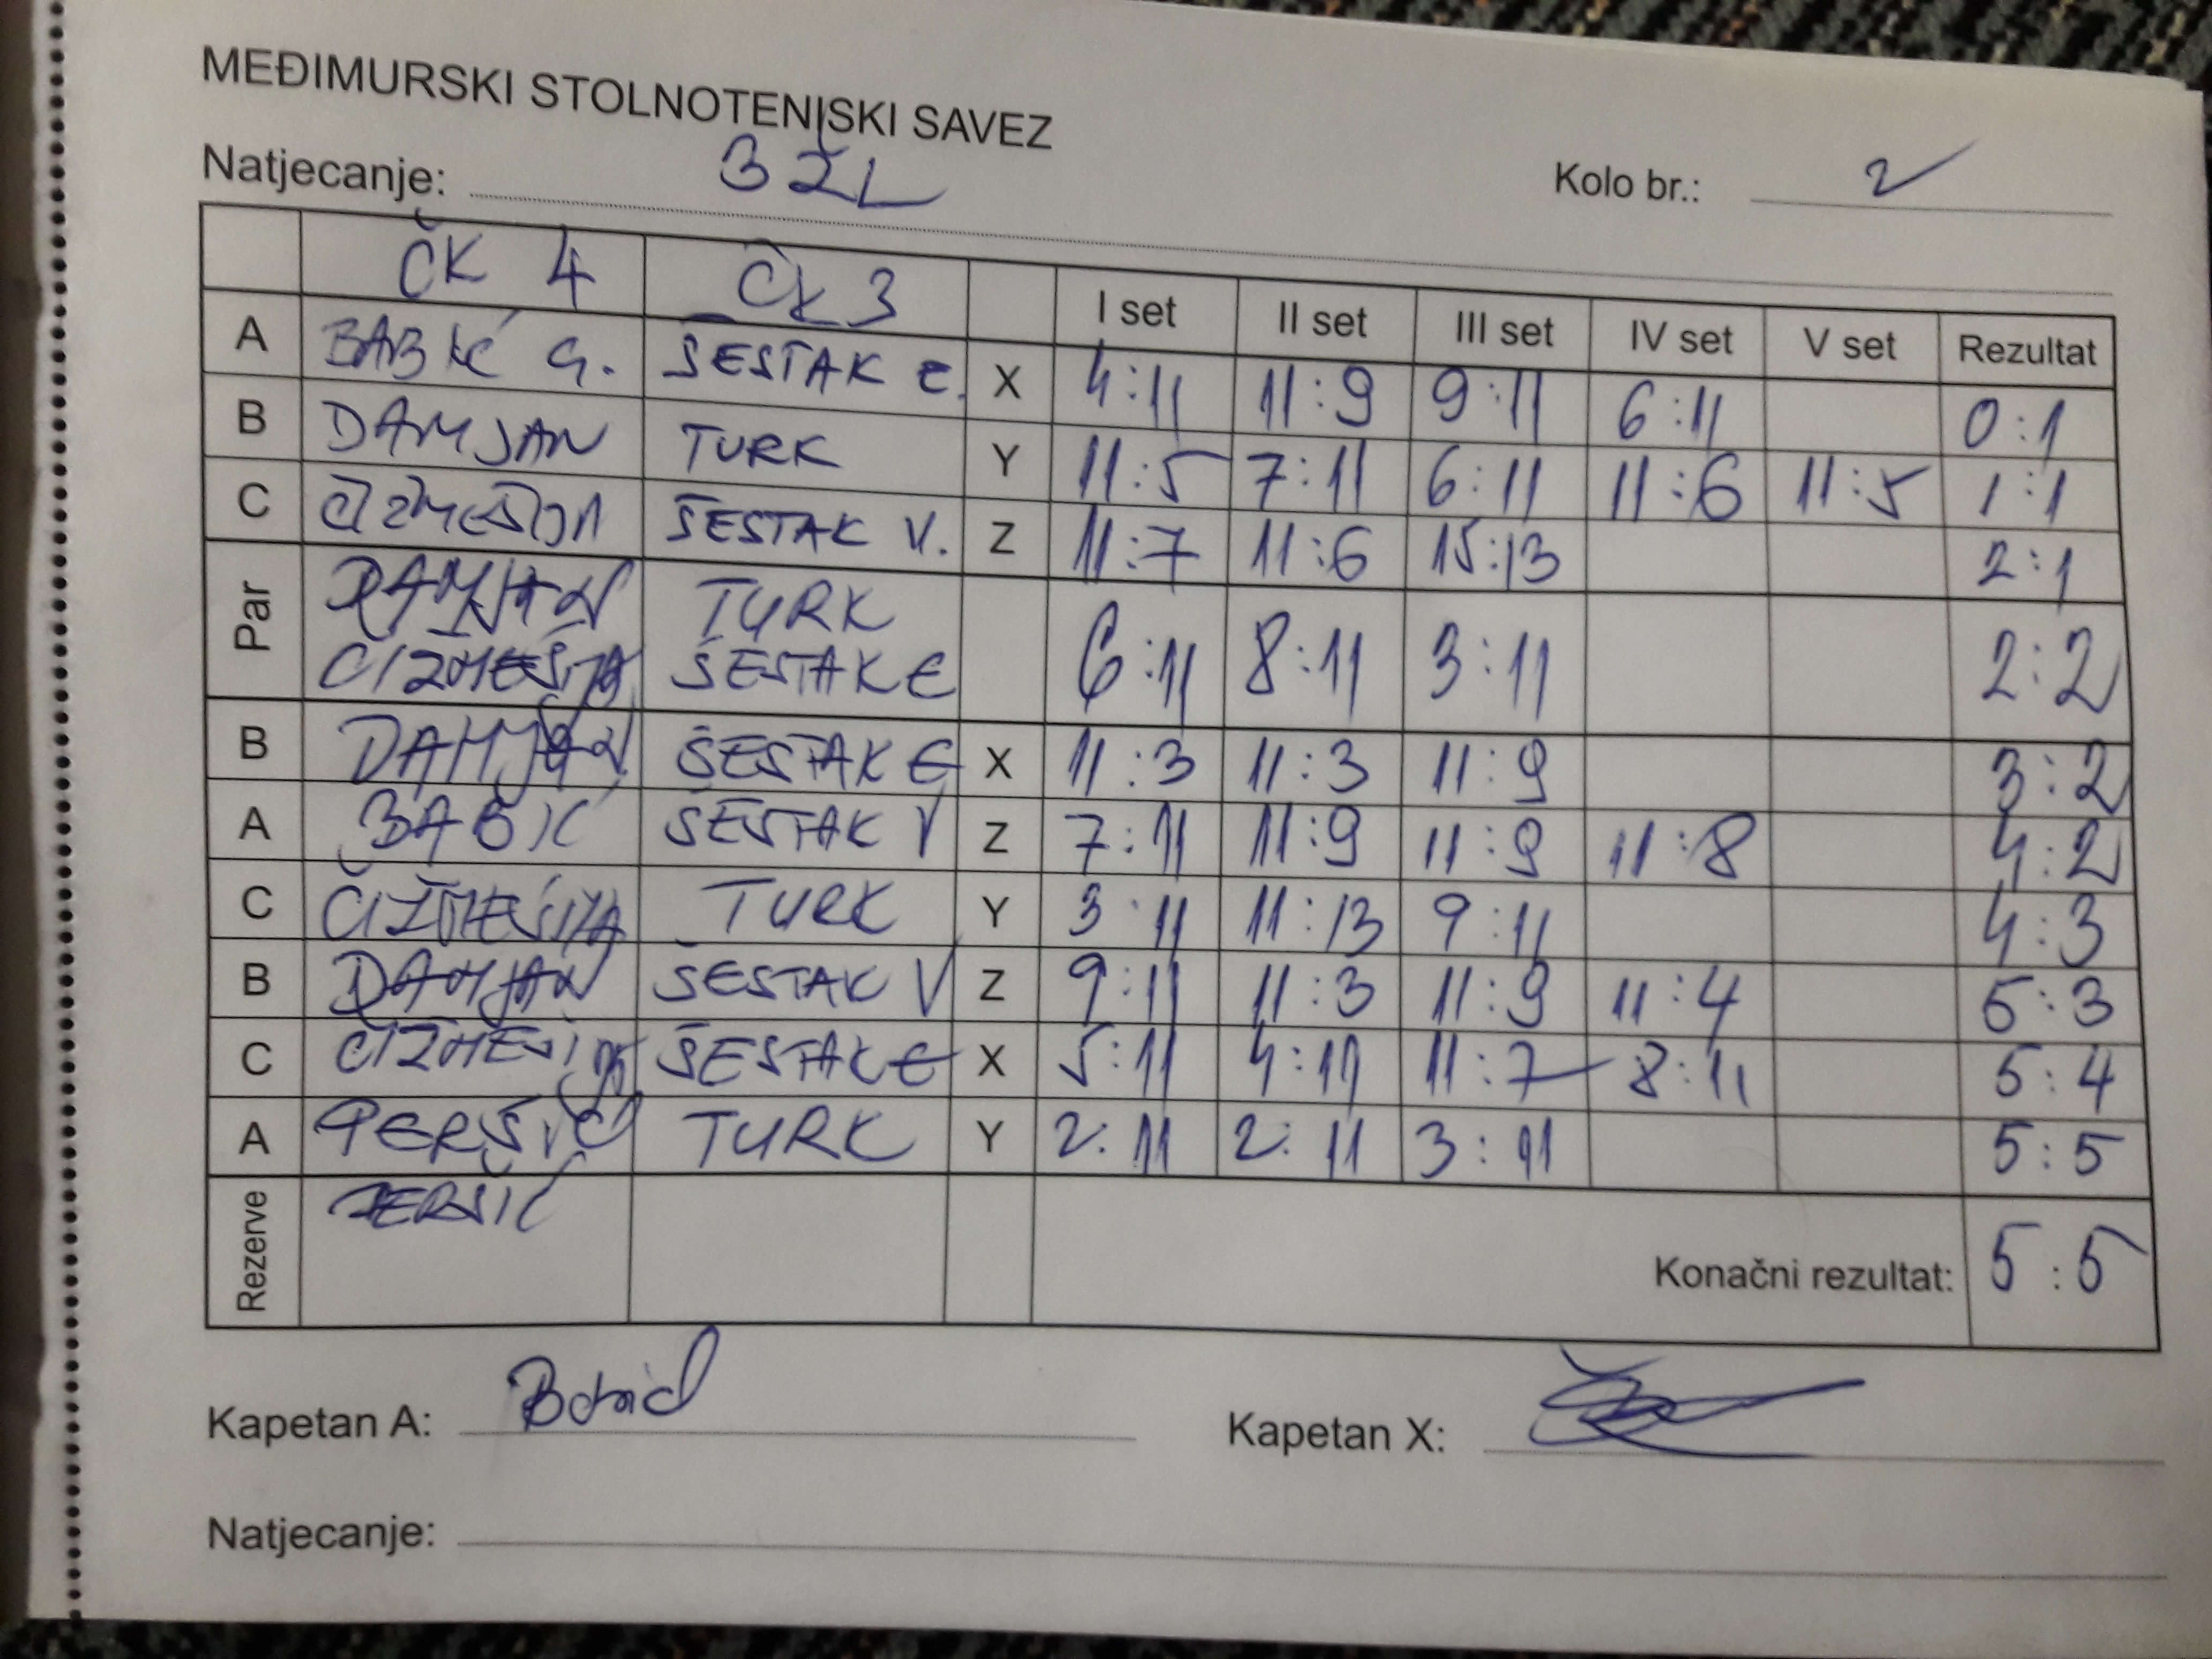 MEĐIMURSKI STOLNOTENISKI SAVEZ
Natjecanje: 3 ŽL Kolo br.: 2
ČK 4 ČK 3 I set II set III set IV set V set Rezultat
A BABIĆ G. ŠESTAK E. X 4:11 11:9 9:11 6:11 0:1
B DAMJAN TURK Y 11:5 7:11 6:11 11:6 11:5 1:1
C ČIZMEŠIJA ŠESTAK V. Z 11:7 11:6 15:13 2:1
Par DAMJAN TURK 6:11 8:11 3:11 2:2
ČIZMEŠIJA ŠESTAK E
B DAMJAN ŠESTAK E X 11:3 11:3 11:9 3:2
A BABIĆ ŠESTAK V Z 7:11 11:9 11:9 11:8 4:2
C ČIŽMEŠIJA TURK Y 3:11 11:13 9:11 4:3
B DAMJAN ŠESTAK V Z 9:11 11:3 11:9 11:4 5:3
C ČIZMEŠIJA ŠESTAK E X 5:11 4:11 11:7 8:11 5:4
A PERŠIĆ TURK Y 2:11 2:11 3:11 5:5
Rezerve PERŠIĆ
Konačni rezultat: 5:5
Kapetan A: Babić Kapetan X:
Natjecanje: